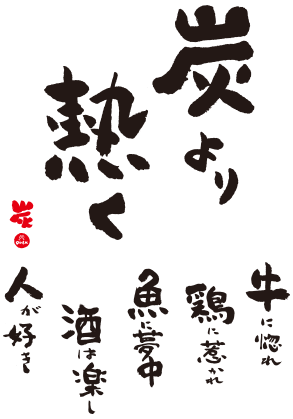 炭より
熱く
炭
牛に惚れ
鶏に惹かれ
魚に夢中
酒は楽し
人が好き